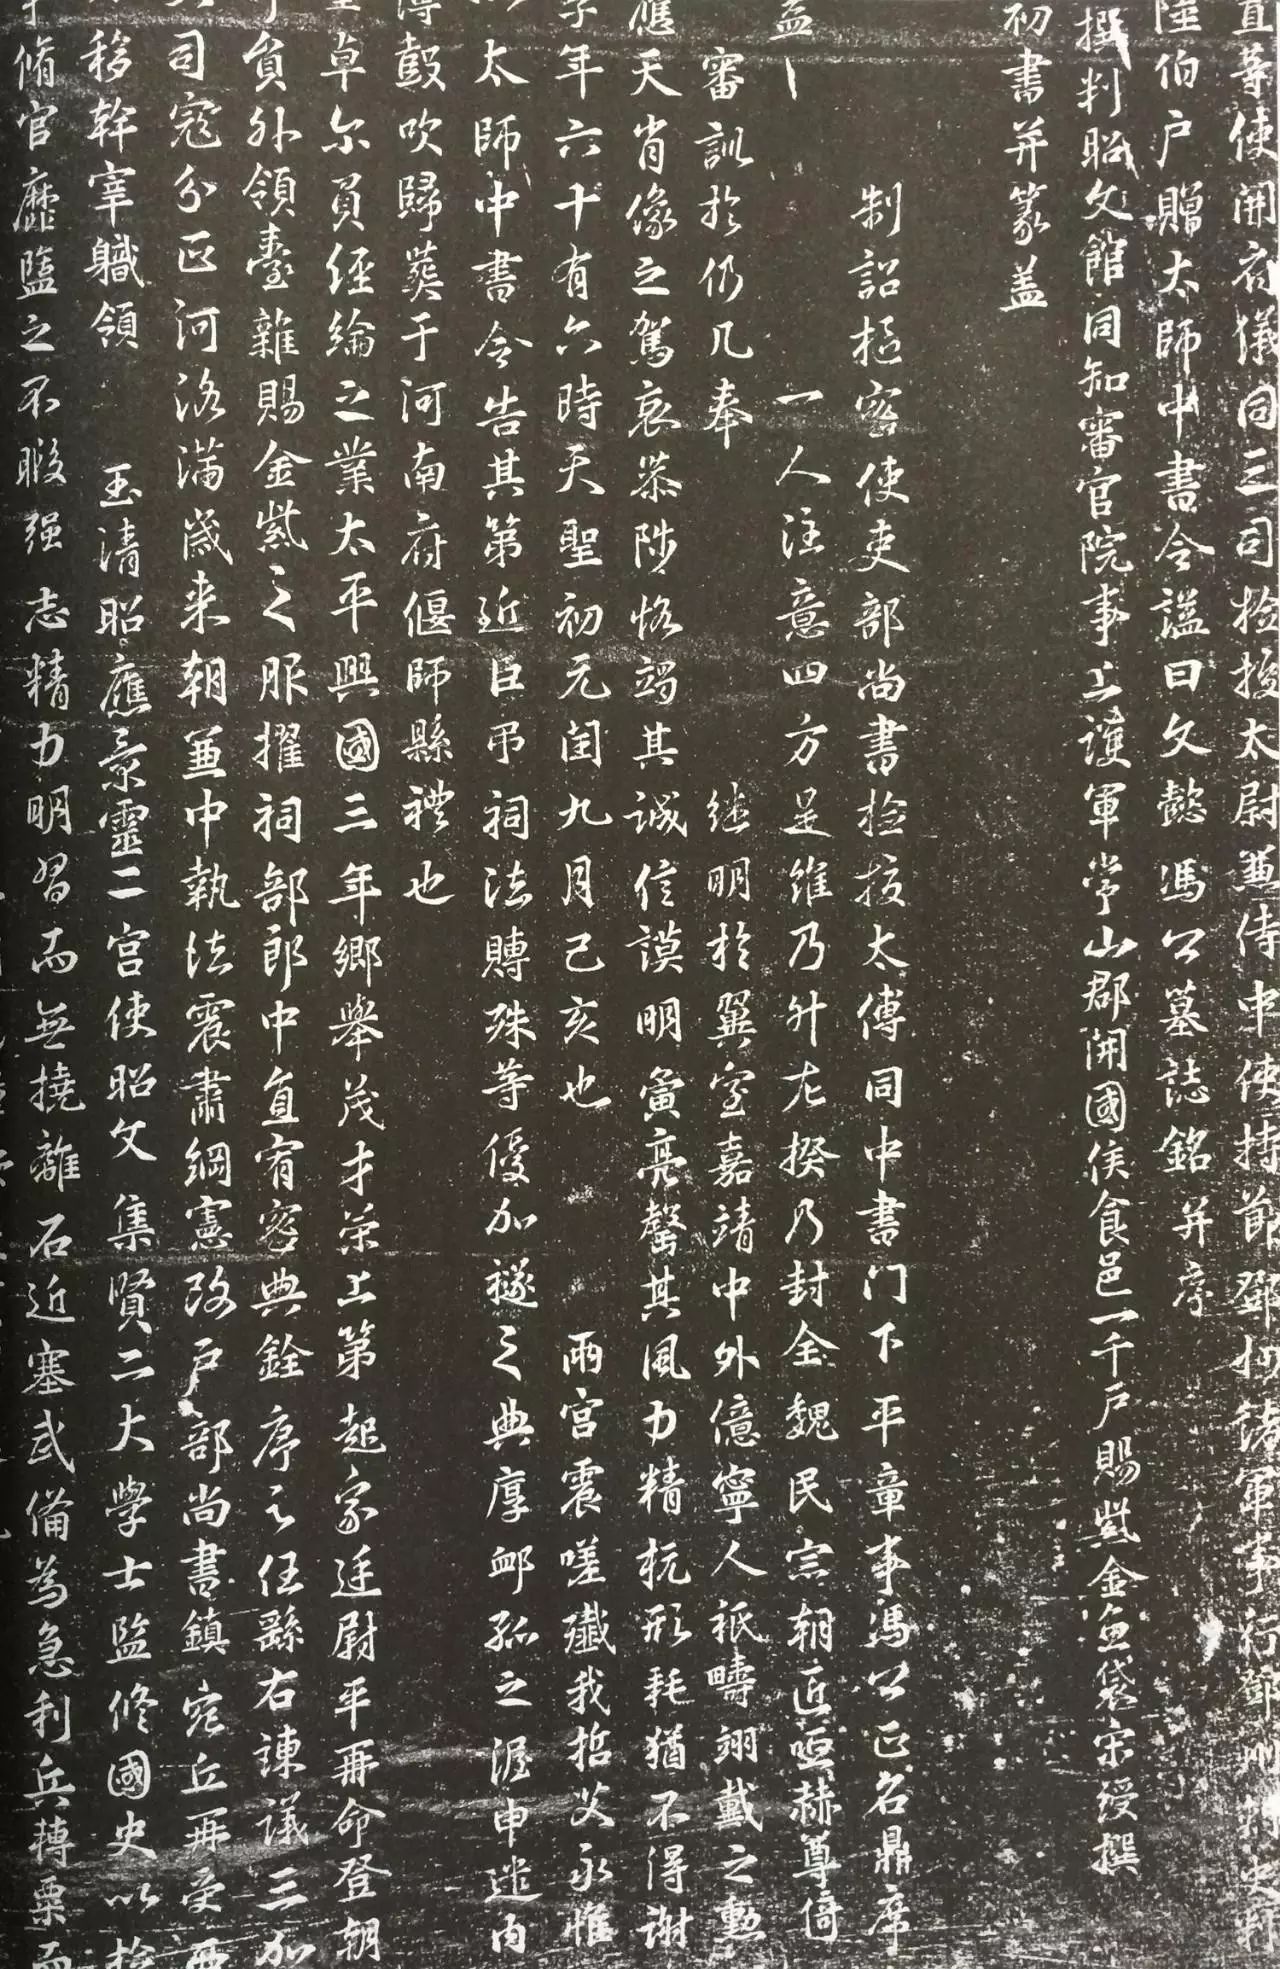 直等使開府儀同三司檢挍太尉兼侍中使持節鄧州諸軍事行鄧州刺史
陸伯户贈太師中書令謚曰文懿馮公墓誌銘并序
撰判昭文館同知審官院事上護軍常山郡開國侯食邑一千户賜紫金魚袋宋綬撰
初書并篆盖
制詔樞密使吏部尚書檢挍太傅同中書门下平章事馮公正名鼎席
一人注意四方是維乃升左揆乃封全魏民宗朝匠咺赫尊倚
繼明於翼室嘉靖中外億寧人祇疇翊戴之勳
審訓於仍几奉
應天肖像之駕哀恭陟恪竭其誠信謨明寅亮罄其風力精杬形耗猶不得謝
年六十有六時天聖初元閏九月己亥也 兩宮震嗟殲我哲艾永惟
太師中書令告其第近臣吊祠法賻殊等優加襚之典厚卹孤之渥申遣内
鼓吹歸葬于河南府偃師縣禮也
卓尔員經綸之業太平興國三年鄉舉茂才荣上第起家廷尉平再命登朝
負外領臺雜賜金紫之服擢祠部郎中直宥密典銓序之任繇右諫議三加
司寇分正河洛滿歲来朝兼中執法震肅綱憲改户部尚書鎮宛丘再受
移幹宰職領 玉清昭應景靈二宫使昭文集賢二大學士監修國史以
脩官廨監之不暇强志精力明習而無撓離石近塞武備為急利兵摶粟而